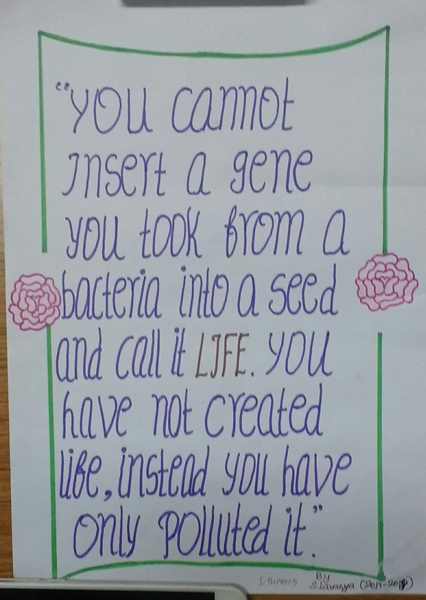 "You cannot
insert a gene
you took from a
bacteria into a seed
and call it LIFE. you
have not created
life, instead you have
only polluted it."
By